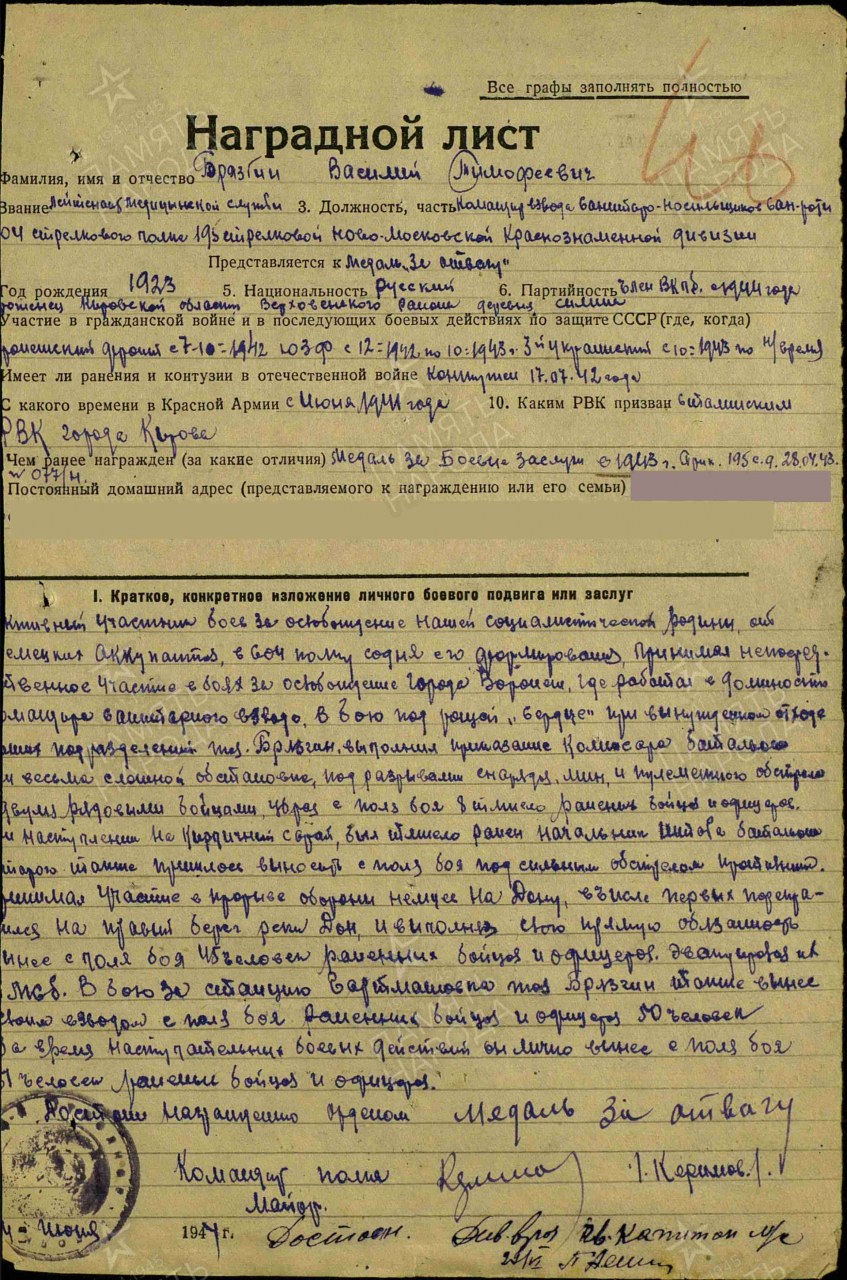 Все графы заполнять полностью
Наградной лист
Фамилия, имя и отчество Брязгин Василий Тимофеевич
Звание Лейтенант Медицинской службы 3. Должность, часть Командир взвода санитаро-носильщиков сан-роты
04 стрелкового полка 195 стрелковой Ново-Московской Краснознаменной дивизии
Представляется к Медаль "За отвагу"
Год рождения 1923 5. Национальность Русский 6. Партийность член ВКПб. с 1944 года
Кировской области Верховенского района деревня
Участие в гражданской войне и в последующих боевых действиях по защите СССР (где, когда)
фронт с 7-10-1942 ЮЗФ с 12-1942 по 10-1943 г. 3й Украинский с 10-1943 по н/время
Имеет ли ранения и контузии в отечественной войне Контужен 17.07.42 года
С какого времени в Красной Армии с Июня 1941 года 10. Каким РВК призван Сталинским
РВК города Кирова
Чем ранее награжден (за какие отличия) Медаль За Боевые заслуги в 1943 г. Прик. 195 с.д. 28.04.43.
№ 077/н
Постоянный домашний адрес (представляемого к награждению или его семьи)
I. Краткое, конкретное изложение личного боевого подвига или заслуг
участник боев за освобождение нашей социалистической Родины, от
оккупантов, в 604 полку со дня его формирования, Принимал непосред-
ственное участие в боях за освобождение города Воронеж, где работал в должности
командира санитарного взвода. В бою под рощей „Сердце" при вынужденном отходе
наших подразделений тов. Брязгин, выполняя приказание Комиссара батальона
весьма сложной обстановке, под разрывами снарядов, мин, и пулеметного обстрела
двумя рядовыми бойцами, убрал с поля боя 8 тяжело раненых бойцов и офицеров.
наступлении на Кирпичный сарай, был тяжело ранен начальник штаба батальона
которого также пришлось выносить с поля боя под сильным обстрелом противника.
Принимая участие в прорыве обороны немцев на Дону, в числе первых перепра-
вился на правый берег реки Дон, и выполняя свою прямую обязанность
вынес с поля боя 45 человек раненных бойцов и офицеров. Эвакуировал их
В бою за станцию Вартмашовка тов Брязгин также вынес
своим взводом с поля боя раненных бойцов и офицеров 50 человек
За время наступательных боевых действий он лично вынес с поля боя
человек раненых бойцов и офицеров.
Достоин награждению орденом Медаль За отвагу
Командир полка /. Керимов. /.
Майор.
Июня 1944 г. Достоин. Див врач гв. капитан м/с